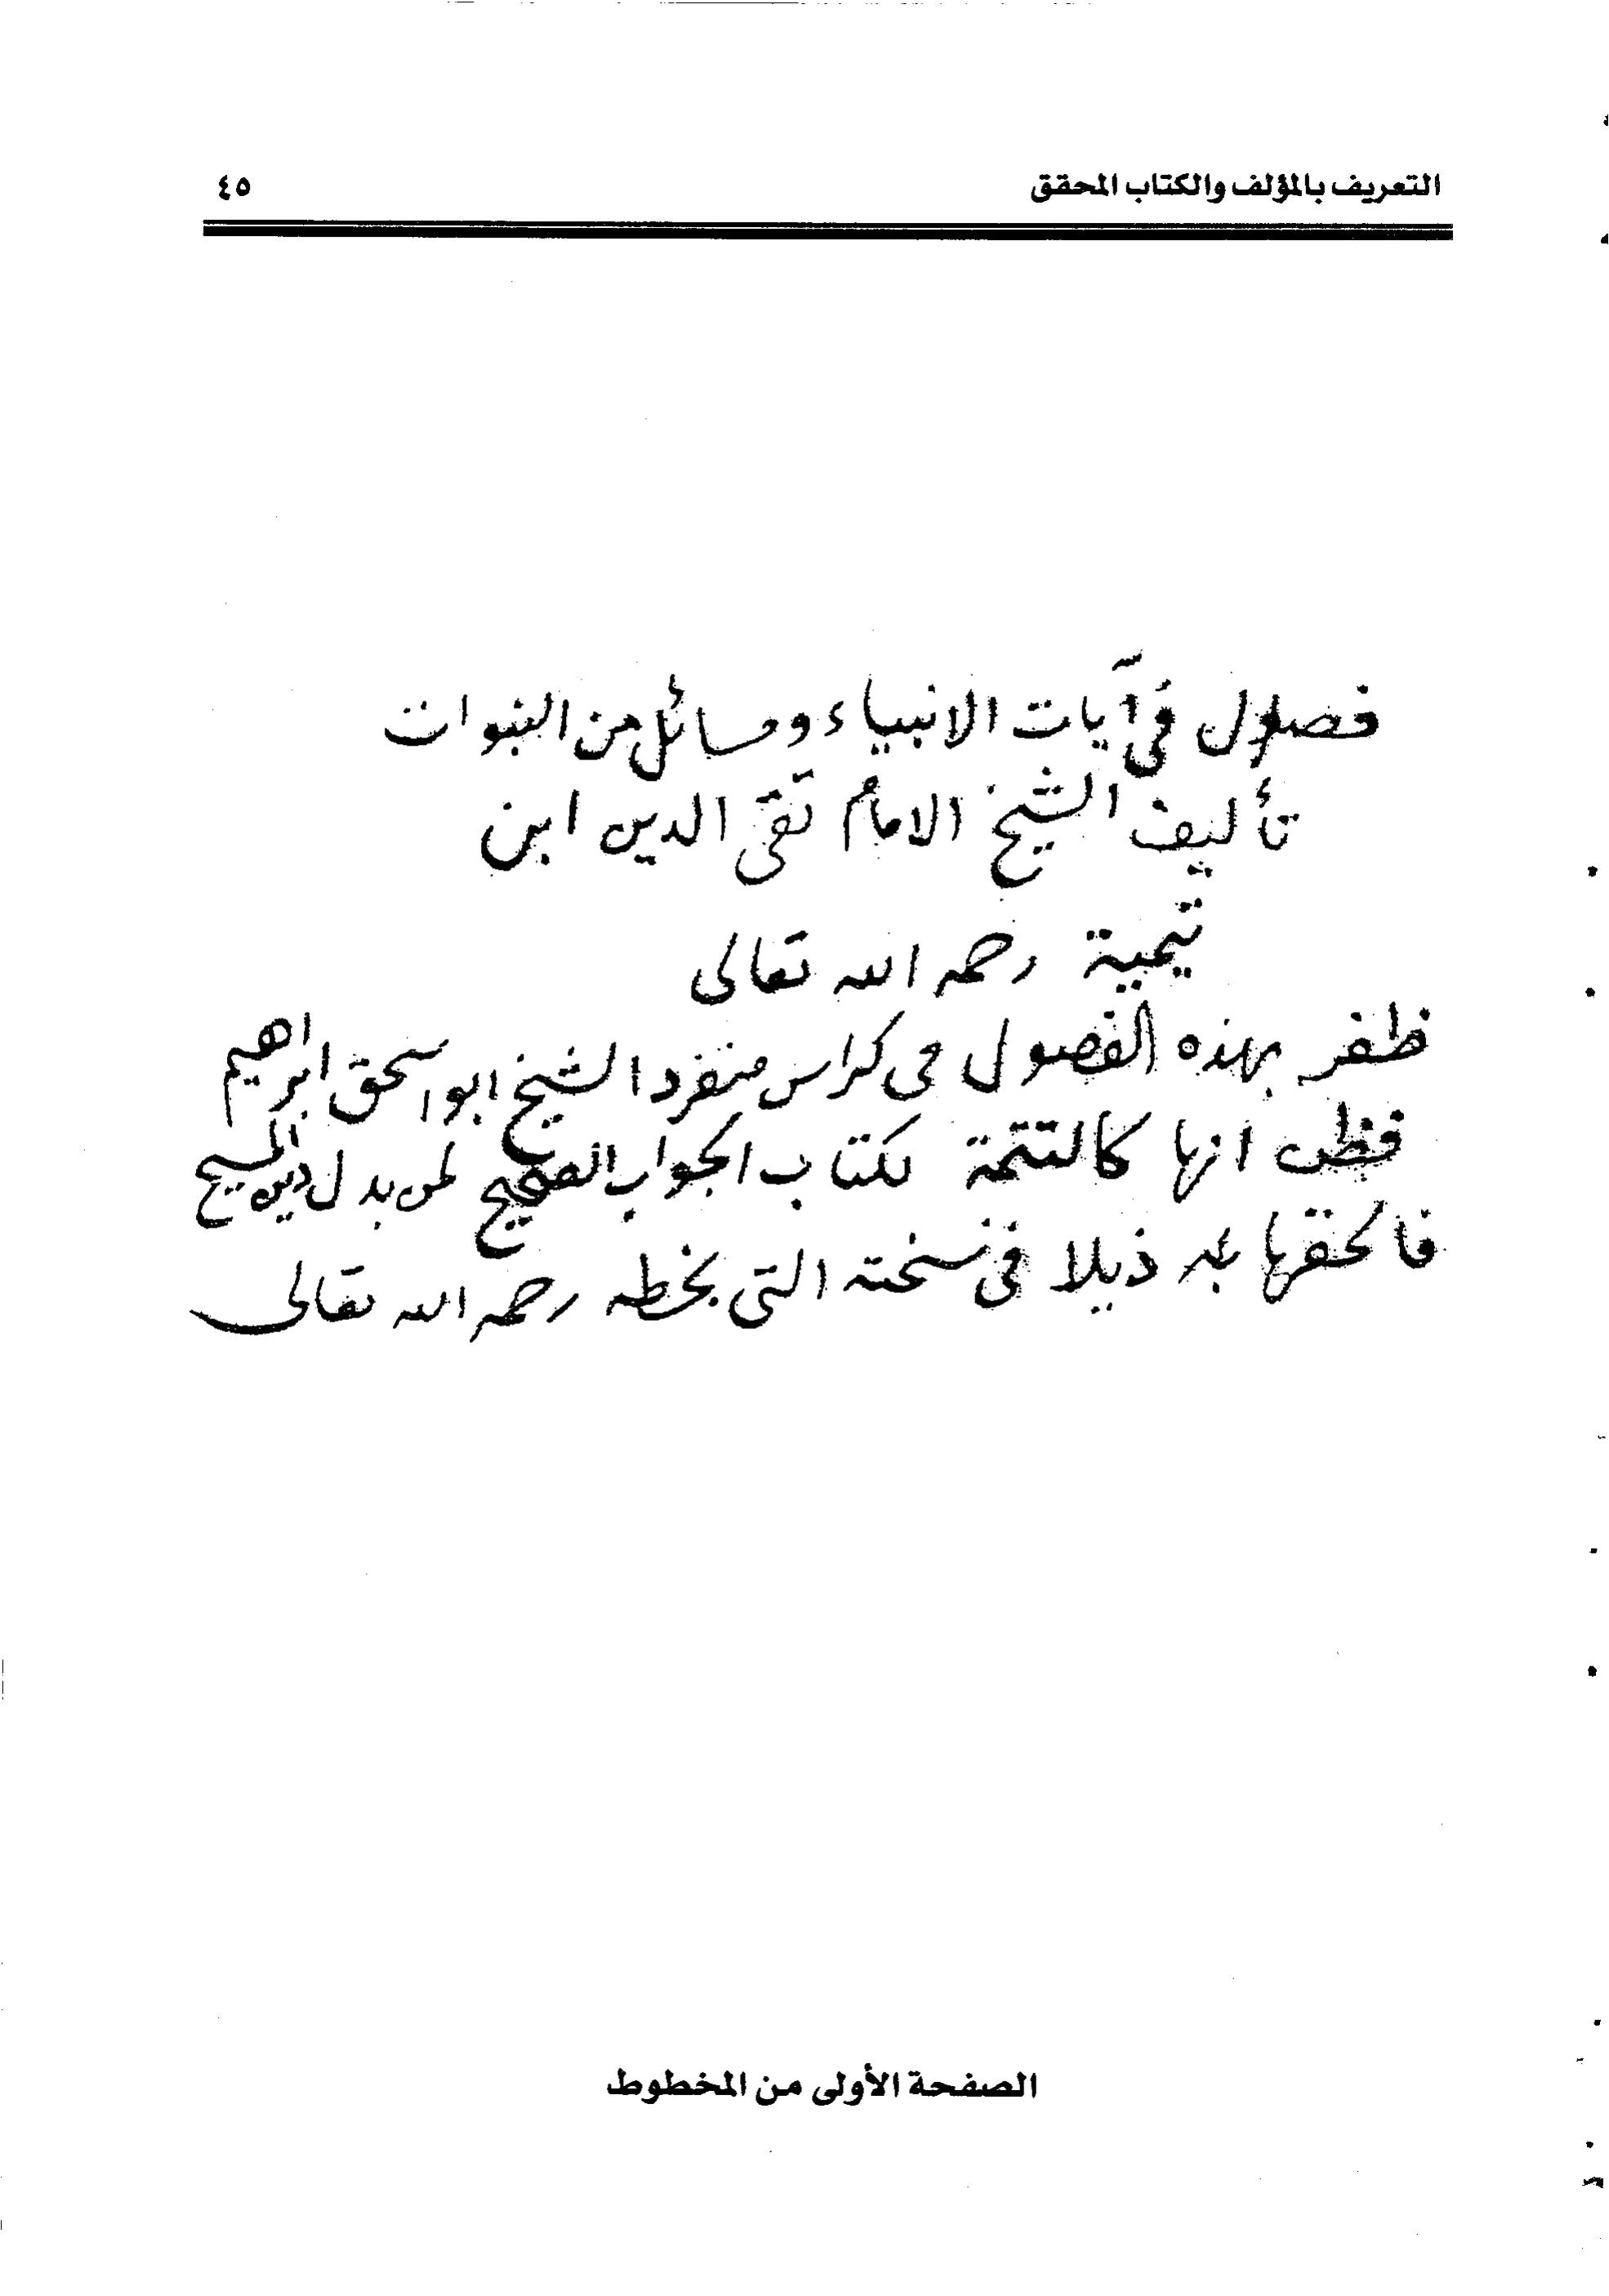 التعريف بالمؤلف والكتاب المحقق
٤٥
فصول في آيات الانبياء ومسائل من النبوات
تأليف الشيخ الامام تقي الدين ابن
تيمية رحمه الله تعالى
ظفر بهذه الفصول في كراس منفرد الشيخ ابو اسحق ابراهيم
فظن انها كالتتمة لكتاب الجواب الصحيح لمن بدل دين المسيح
فالحقها به ذيلا في نسخته التي بخطه رحمه الله تعالى
الصفحة الأولى من المخطوط